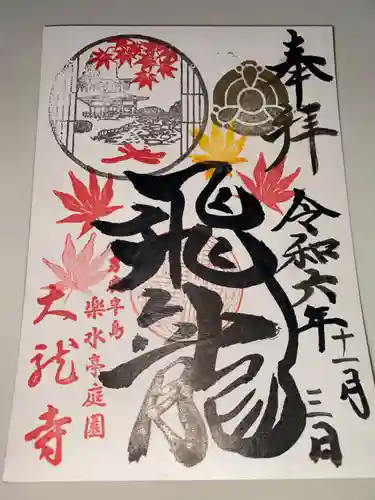 奉拝
令和六年
十一月
三日
飛龍
楽水亭庭園
大龍寺